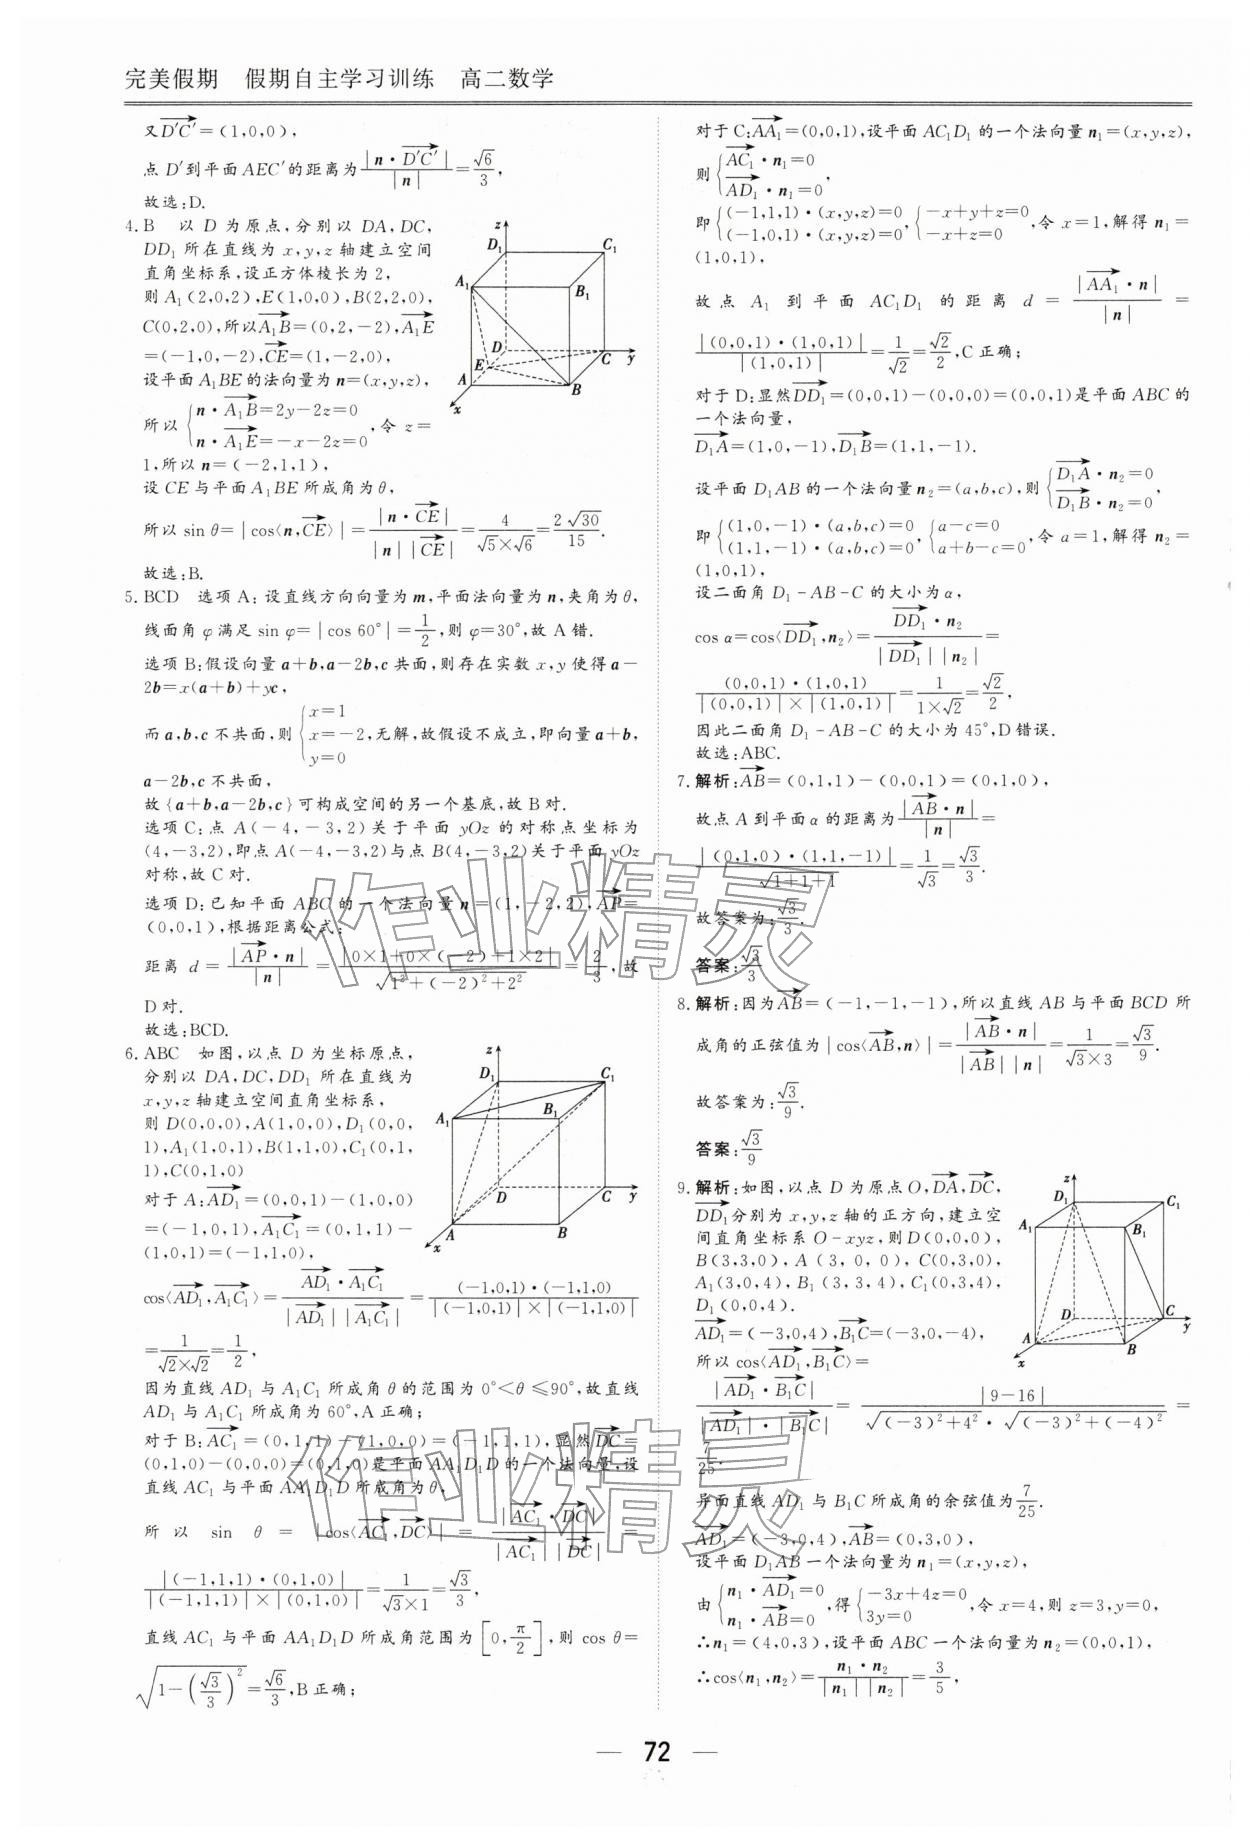 完美假期　假期自主学习训练　高二数学
又$\overrightarrow{D'C'}$=(1,0,0),
点 D′到平面 AEC′的距离为$\frac{|n·\overrightarrow{D'C'}|}{|n|}=\frac{\sqrt{6}}{3}$,
故选:D.
4. B　以 D 为原点,分别以 DA,DC,
DD₁ 所在直线为 x,y,z 轴建立空间
直角坐标系,设正方体棱长为 2,
则 A₁(2,0,2),E(1,0,0),B(2,2,0),
C(0,2,0),所以$\overrightarrow{A_1B}$=(0,2,-2),$\overrightarrow{A_1E}$
=(-1,0,-2),$\overrightarrow{CE}$=(1,-2,0),
设平面 A₁BE 的法向量为 n=(x,y,z),
所以$\begin{cases}n·\overrightarrow{A_1B}=2y-2z=0\\n·\overrightarrow{A_1E}=-x-2z=0\end{cases}$,令 z=
1,所以 n=(-2,1,1),
设 CE 与平面 A₁BE 所成角为θ,
所以 sin θ=|cos⟨n,$\overrightarrow{CE}$⟩|=$\frac{|n·\overrightarrow{CE}|}{|n||\overrightarrow{CE}|}=\frac{4}{\sqrt{5}×\sqrt{6}}=\frac{2\sqrt{30}}{15}$.
故选:B.
z
D₁ C₁
A₁ B₁
D E C y
A B
x
5. BCD　选项 A:设直线方向向量为 m,平面法向量为 n,夹角为θ,
线面角 φ 满足 sin φ=|cos 60°|=$\frac{1}{2}$,则 φ=30°,故 A 错.
选项 B:假设向量 a+b,a-2b,c 共面,则存在实数 x,y 使得 a-
2b=x(a+b)+yc,
而 a,b,c 不共面,则$\begin{cases}x=1\\x=-2\\y=0\end{cases}$,无解,故假设不成立,即向量 a+b,
a-2b,c 不共面,
故{a+b,a-2b,c}可构成空间的另一个基底,故 B 对.
选项 C:点 A(-4,-3,2)关于平面 yOz 的对称点坐标为
(4,-3,2),即点 A(-4,-3,2)与点 B(4,-3,2)关于平面 yOz
对称,故 C 对.
选项 D:已知平面 ABC 的一个法向量 n=(1,-2,2),$\overrightarrow{AP}$=
(0,0,1),根据距离公式:
距离 d=$\frac{|\overrightarrow{AP}·n|}{|n|}=\frac{|0×1+0×(-2)+1×2|}{\sqrt{1^2+(-2)^2+2^2}}=\frac{2}{3}$,故
D 对.
故选:BCD.
6. ABC　如图,以点 D 为坐标原点,
分别以 DA,DC,DD₁ 所在直线为
x,y,z 轴建立空间直角坐标系,
则 D(0,0,0),A(1,0,0),D₁(0,0,
1),A₁(1,0,1),B(1,1,0),C₁(0,1,
1),C(0,1,0)
对于 A:$\overrightarrow{AD_1}$=(0,0,1)-(1,0,0)
=(-1,0,1),$\overrightarrow{A_1C_1}$=(0,1,1)-
(1,0,1)=(-1,1,0),
z
D₁ C₁
A₁ B₁
D C y
A B
x
cos⟨$\overrightarrow{AD_1}$,$\overrightarrow{A_1C_1}$⟩=$\frac{\overrightarrow{AD_1}·\overrightarrow{A_1C_1}}{|\overrightarrow{AD_1}||\overrightarrow{A_1C_1}|}=\frac{(-1,0,1)·(-1,1,0)}{|(-1,0,1)|×|(-1,1,0)|}$
=$\frac{1}{\sqrt{2}×\sqrt{2}}=\frac{1}{2}$,
因为直线 AD₁ 与 A₁C₁ 所成角 θ 的范围为 0°<θ≤90°,故直线
AD₁ 与 A₁C₁ 所成角为 60°,A 正确;
对于 B:$\overrightarrow{AC_1}$=(0,1,1)-(1,0,0)=(-1,1,1),显然$\overrightarrow{DC}$=
(0,1,0)-(0,0,0)=(0,1,0)是平面 AA₁D₁D 的一个法向量,设
直线 AC₁ 与平面 AA₁D₁D 所成角为 θ,
所以 sin θ = |cos⟨$\overrightarrow{AC_1}$,$\overrightarrow{DC}$⟩| = $\frac{|\overrightarrow{AC_1}·\overrightarrow{DC}|}{|\overrightarrow{AC_1}||\overrightarrow{DC}|}$ =
$\frac{|(-1,1,1)·(0,1,0)|}{|(-1,1,1)|×|(0,1,0)|}=\frac{1}{\sqrt{3}×1}=\frac{\sqrt{3}}{3}$,
直线 AC₁ 与平面 AA₁D₁D 所成角范围为$\left[0,\frac{π}{2}\right]$,则 cos θ=
$\sqrt{1-\left(\frac{\sqrt{3}}{3}\right)^2}=\frac{\sqrt{6}}{3}$,B 正确;
对于 C:$\overrightarrow{AA_1}$=(0,0,1),设平面 AC₁D₁ 的一个法向量 n₁=(x,y,z),
则$\begin{cases}\overrightarrow{AC_1}·n_1=0\\\overrightarrow{AD_1}·n_1=0\end{cases}$,
即$\begin{cases}(-1,1,1)·(x,y,z)=0\\(-1,0,1)·(x,y,z)=0\end{cases}$,$\begin{cases}-x+y+z=0\\-x+z=0\end{cases}$,令 x=1,解得 n₁=
(1,0,1),
故点 A₁ 到平面 AC₁D₁ 的距离 d = $\frac{|\overrightarrow{AA_1}·n|}{|n|}$ =
$\frac{|(0,0,1)·(1,0,1)|}{|(1,0,1)|}=\frac{1}{\sqrt{2}}=\frac{\sqrt{2}}{2}$,C 正确;
对于 D:显然$\overrightarrow{DD_1}$=(0,0,1)-(0,0,0)=(0,0,1)是平面 ABC 的
一个法向量,
$\overrightarrow{D_1A}$=(1,0,-1),$\overrightarrow{D_1B}$=(1,1,-1).
设平面 D₁AB 的一个法向量 n₂=(a,b,c),则$\begin{cases}\overrightarrow{D_1A}·n_2=0\\\overrightarrow{D_1B}·n_2=0\end{cases}$,
即$\begin{cases}(1,0,-1)·(a,b,c)=0\\(1,1,-1)·(a,b,c)=0\end{cases}$,$\begin{cases}a-c=0\\a+b-c=0\end{cases}$,令 a=1,解得 n₂=
(1,0,1),
设二面角 D₁-AB-C 的大小为 α,
cos α=cos⟨$\overrightarrow{DD_1}$,n₂⟩=$\frac{\overrightarrow{DD_1}·n_2}{|\overrightarrow{DD_1}||n_2|}$=
$\frac{(0,0,1)·(1,0,1)}{|(0,0,1)|×|(1,0,1)|}=\frac{1}{1×\sqrt{2}}=\frac{\sqrt{2}}{2}$,
因此二面角 D₁-AB-C 的大小为 45°,D 错误.
故选:ABC.
7. 解析:$\overrightarrow{AB}$=(0,1,1)-(0,0,1)=(0,1,0),
故点 A 到平面 α 的距离为$\frac{|\overrightarrow{AB}·n|}{|n|}$=
$\frac{|(0,1,0)·(1,1,-1)|}{\sqrt{1+1+1}}=\frac{1}{\sqrt{3}}=\frac{\sqrt{3}}{3}$.
故答案为:$\frac{\sqrt{3}}{3}$.
答案:$\frac{\sqrt{3}}{3}$
8. 解析:因为$\overrightarrow{AB}$=(-1,-1,-1),所以直线 AB 与平面 BCD 所
成角的正弦值为|cos⟨$\overrightarrow{AB}$,n⟩|=$\frac{|\overrightarrow{AB}·n|}{|\overrightarrow{AB}||n|}=\frac{1}{\sqrt{3}×3}=\frac{\sqrt{3}}{9}$.
故答案为:$\frac{\sqrt{3}}{9}$.
答案:$\frac{\sqrt{3}}{9}$
9. 解析:如图,以点 D 为原点 O,$\overrightarrow{DA}$,$\overrightarrow{DC}$,
$\overrightarrow{DD_1}$分别为 x,y,z 轴的正方向,建立空
间直角坐标系 O-xyz,则 D(0,0,0),
B(3,3,0),A(3,0,0),C(0,3,0),
A₁(3,0,4),B₁(3,3,4),C₁(0,3,4),
D₁(0,0,4).
$\overrightarrow{AD_1}$=(-3,0,4),$\overrightarrow{B_1C}$=(-3,0,-4),
所以 cos⟨$\overrightarrow{AD_1}$,$\overrightarrow{B_1C}$⟩=
z
D₁ C₁
A₁ B₁
D C y
A B
x
$\frac{|\overrightarrow{AD_1}·\overrightarrow{B_1C}|}{|\overrightarrow{AD_1}|·|\overrightarrow{B_1C}|}$ = $\frac{|9-16|}{\sqrt{(-3)^2+4^2}·\sqrt{(-3)^2+(-4)^2}}$ =
$\frac{7}{25}$.
异面直线 AD₁ 与 B₁C 所成角的余弦值为$\frac{7}{25}$.
$\overrightarrow{AD_1}$=(-3,0,4),$\overrightarrow{AB}$=(0,3,0),
设平面 D₁AB 一个法向量为 n₁=(x,y,z),
由$\begin{cases}n_1·\overrightarrow{AD_1}=0\\n_1·\overrightarrow{AB}=0\end{cases}$,得$\begin{cases}-3x+4z=0\\3y=0\end{cases}$,令 x=4,则 z=3,y=0,
∴n₁=(4,0,3),设平面 ABC 一个法向量为 n₂=(0,0,1),
∴cos⟨n₁,n₂⟩=$\frac{n_1·n_2}{|n_1||n_2|}=\frac{3}{5}$,
— 72 —
作业精灵
作业精灵